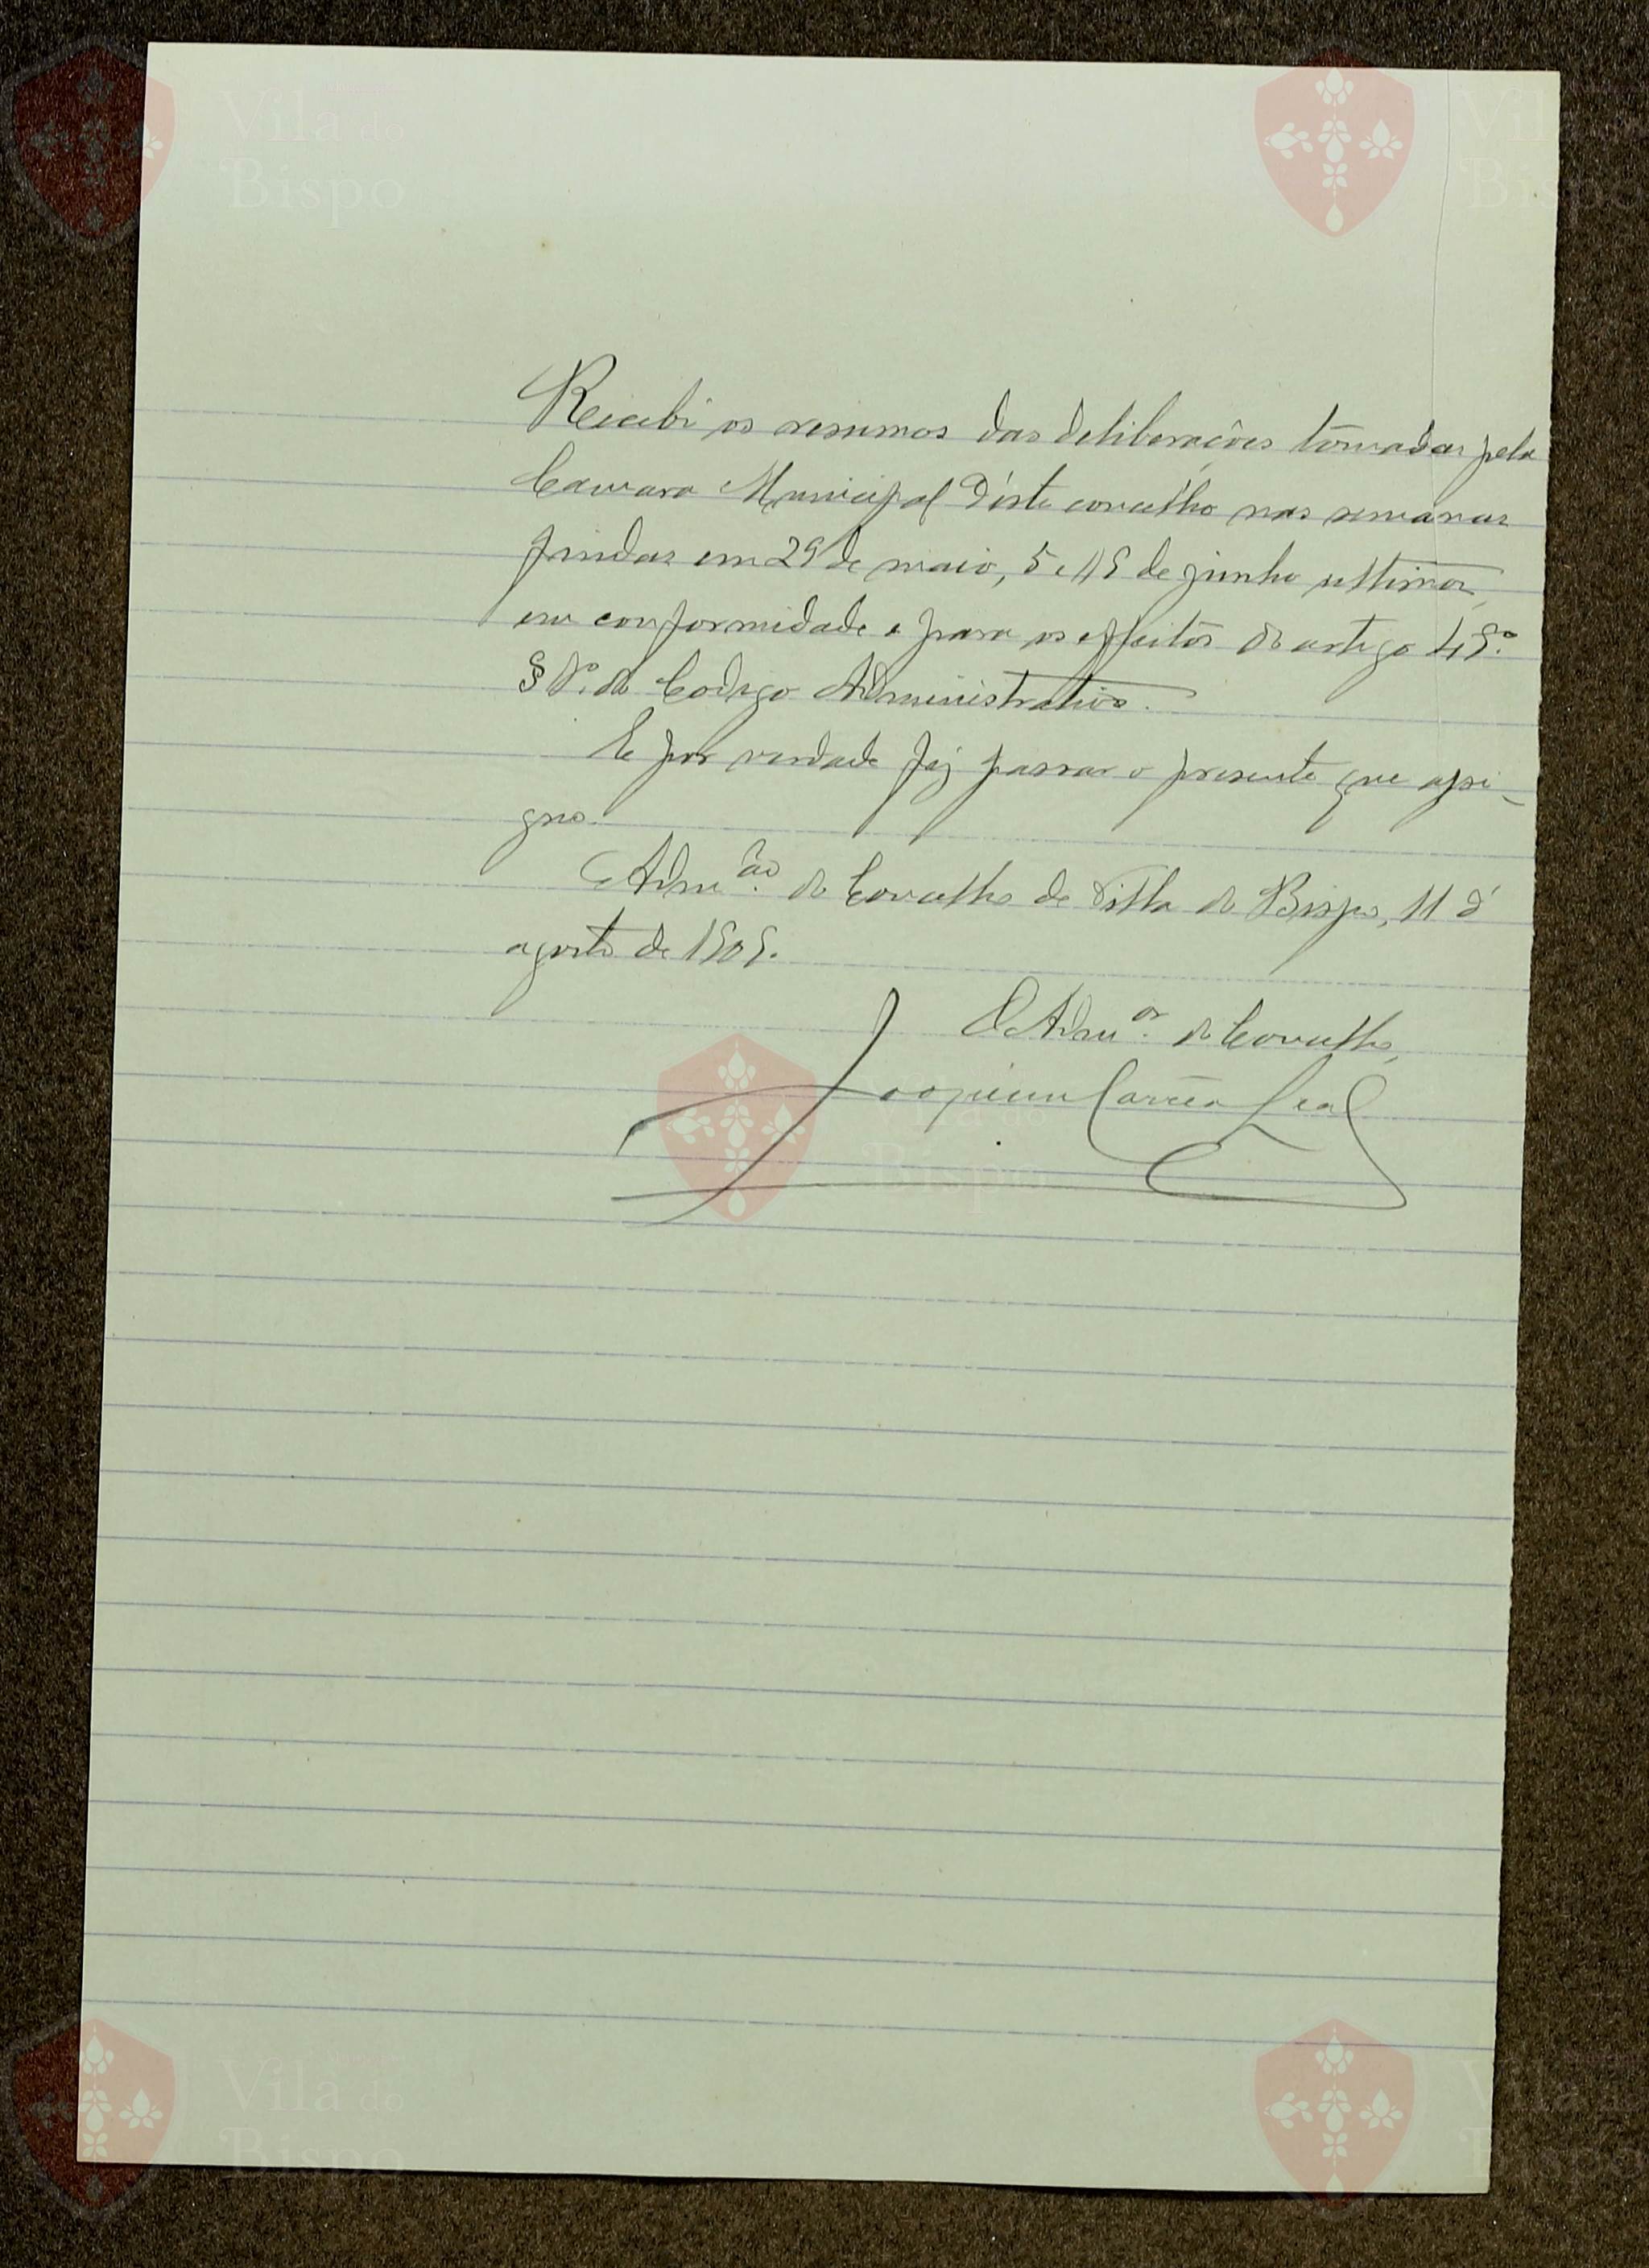 Vila do
Bispo
Recebi os resumos das deliberações tomadas pela
Camara Municipal d'este concelho nas semanas
findas em 29 de maio, 5 e 19 de junho ultimos,
em conformidade e para os effeitos do artigo 49.º
§ 1.º do Codigo Administrativo.
E por verdade fiz passar o presente que assi-
gno.
Adm.ão do Concelho de Villa do Bispo, 11 d'
agosto de 1909.
O Adm.or do Concelho,
Joaquim Corrêa Leal
Vila do
Bispo
Vila do
Bispo